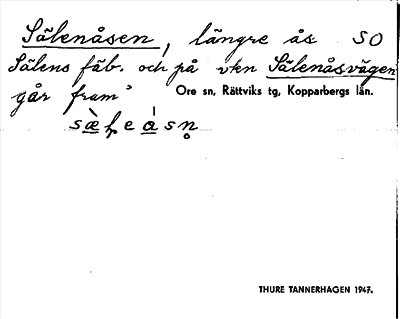 Sälenåsen, längre ås SO
Sälens fäb. och på vken Sälenåsvägen
går fram
Ore sn, Rättviks tg, Kopparbergs län.
THURE TANNERHAGEN 1947.